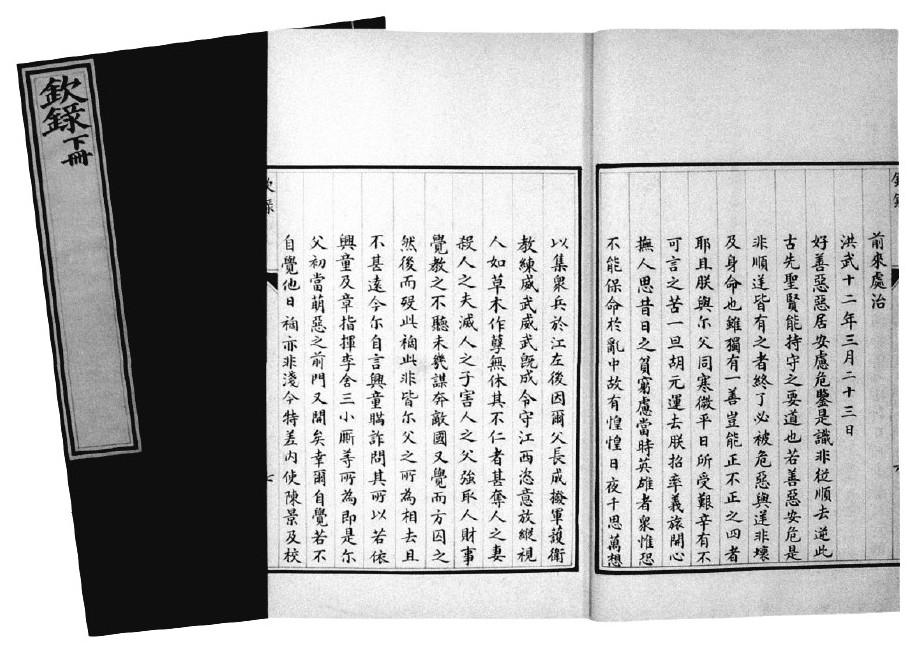 欽錄
下冊
前來處治
洪武十二年三月二十三日
好善惡惡居安慮危鑒是識非從順去逆此
古先聖賢能持守之要道也若善惡安危是
非順逆皆有之者終了必被危惡與逆非壞
及身命也雖獨有一善豈能正不正之四者
耶且朕與尔父同寒微平日所受艱辛有不
可言之苦一旦胡元運去朕招率義旅開心
撫人思昔日之貧窮處當時英雄者衆惟恐
不能保命於亂中故有惶惶日夜千思萬想
以集衆兵於江左後因爾父長成撥軍護衛
教練威武威武既成令守江西恣意放縱視
人如草木作孽無休其不仁者甚奪人之妻
殺人之夫滅人之子害人之父強取人財事
覺教之不聽未幾謀奔敵國又覺而方囚之
然後而歿此禍此非皆尔父之所為相去且
不甚遠今尔自言興童瞞詐問其所以若依
興童及章指揮李舍三小厮等所為即是尔
父初當萌惡之前門又開矣幸爾自覺若不
自覺他日禍亦非淺今特差內使陳景及校